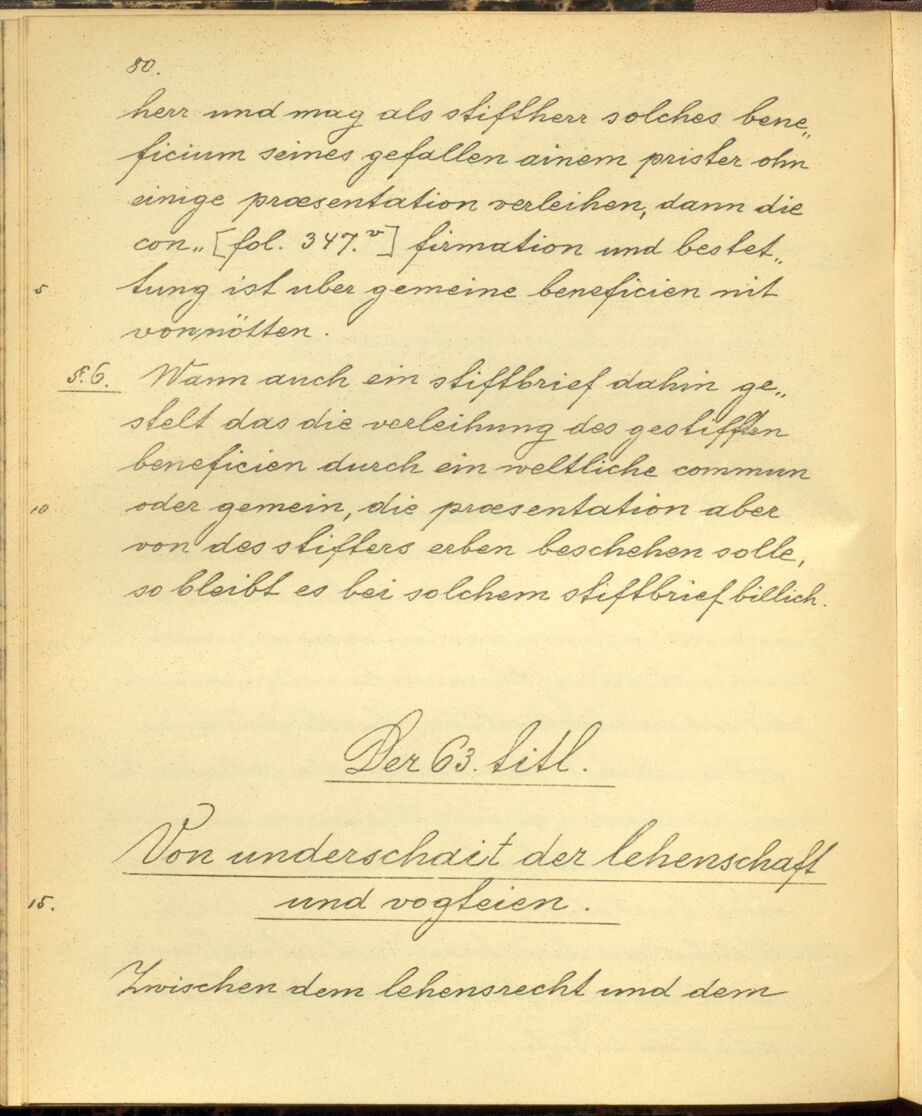 80.
herr und mag als stiftherr solches bene„
ficium seines gefallen ainem prister ohn
einige præsentation verleihen, dann die
con„ [fol. 347.v] firmation und bestet„
5 tung ist uber gemeine beneficien nit
vonnötten.
§. 6. Wann auch ein stiftbrief dahin ge„
stelt das die verleihung des gestifften
beneficien durch ein weltliche commun
10 oder gemein, die præsentation aber
von des stifters erben beschehen solle,
so bleibt es bei solchem stiftbrief billich.
Der 63. titl.
Von underschait der lehenschaft
15. und vogteien.
Zwischen dem lehensrecht und dem